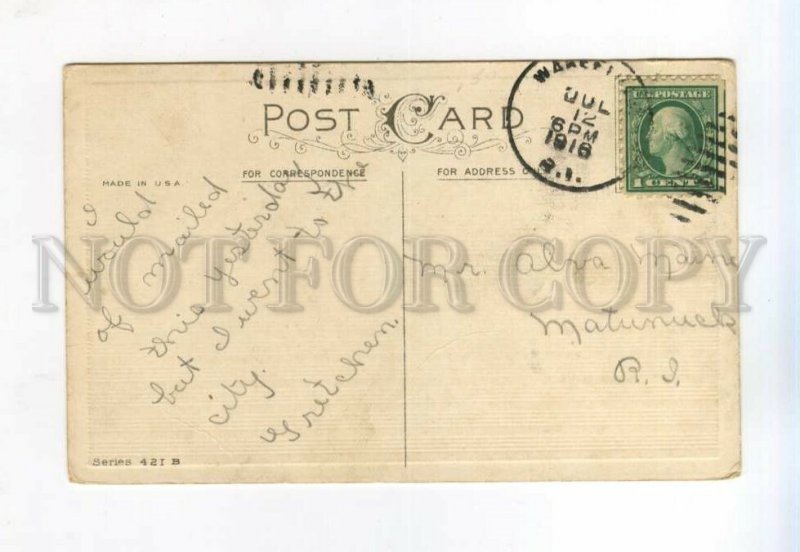 POST CARD
WAKEFI
JUL
12
6 PM
1916
R.I.
U.S. POSTAGE
1 CENT 1
MADE IN U.S.A.
FOR CORRESPONDENCE
FOR ADDRESS O
I would
of mailed
this yesterday
but I went to the
city.
Gretchen.
Mr. Alva Maine
Matunuck
R. I.
Series 421 B
NOT FOR COPY